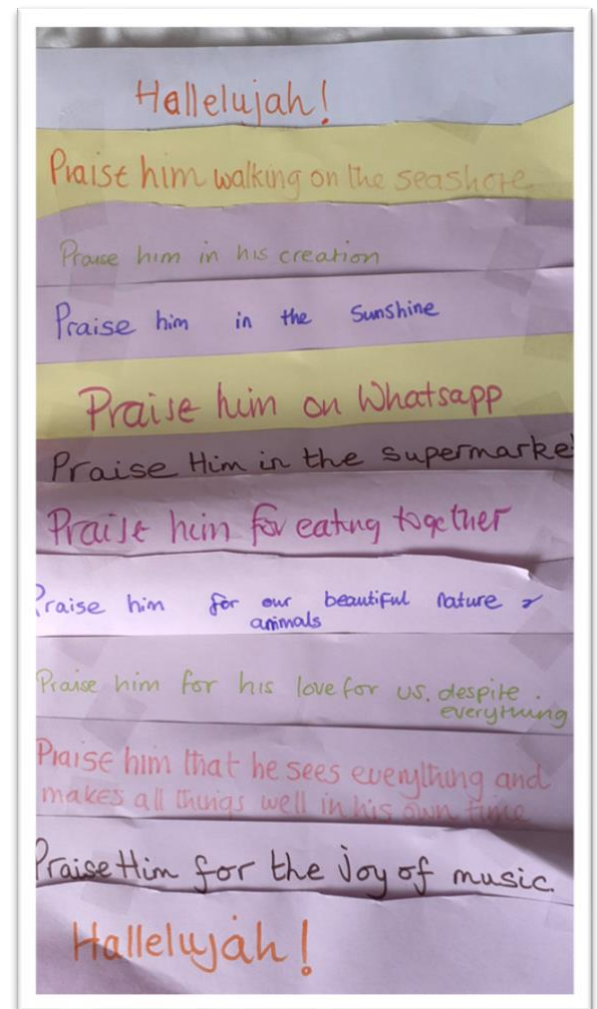 Hallelujah!
Praise him walking on the seashore
Praise him in his creation
Praise him in the Sunshine
Praise him on Whatsapp
Praise Him in the supermarket
Praise him for eating together
Praise him for our beautiful nature &
animals
Praise him for his love for us, despite
everything
Praise him that he sees everything and
makes all things well in his own time
Praise Him for the joy of music.
Hallelujah!